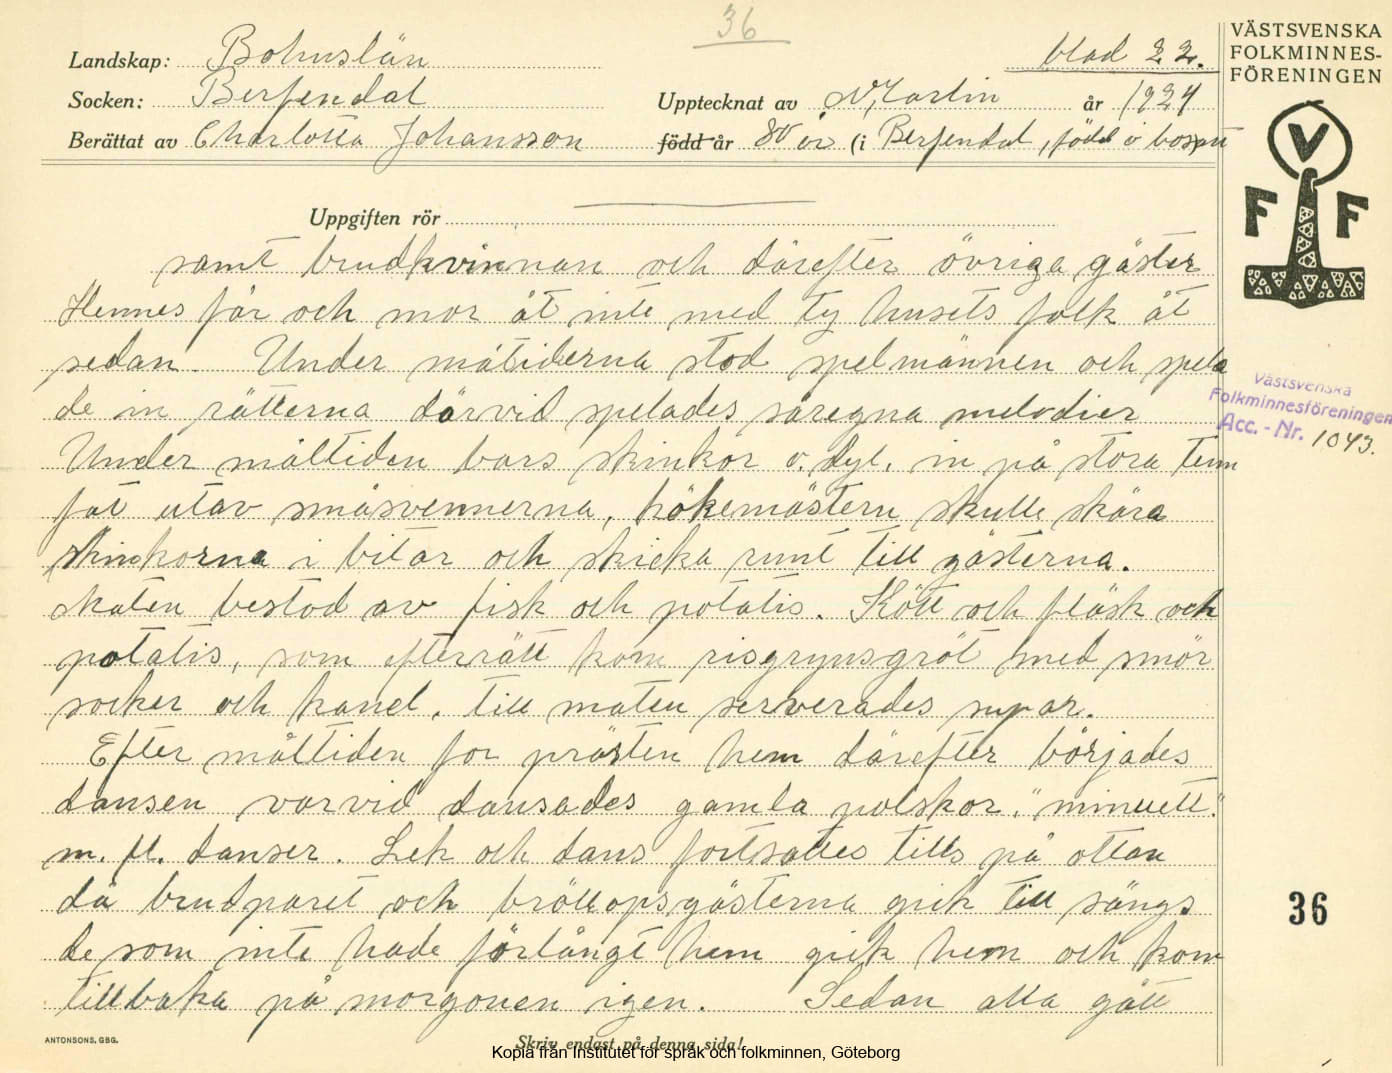 36
blad 22.
VÄSTSVENSKA
FOLKMINNES-
FÖRENINGEN
Landskap: Bohuslän
Socken: Berfendal
Upptecknat av Martin år 1924
Berättat av Charlotta Johansson född år 80 år (i Berfendal, född o bosatt
V
F F
Uppgiften rör
samt brudkvinnan och därefter övriga gäster
Hennes får och mor åt inte med ty husets folk åt
sedan. Under måtiderna stod spelmännen och spela
de in rätterna därvid spelades säregna melodier
Under måltiden bars skinkor o. dyl. in på stora tenn
fat utav småsvennerna, kökemästern skulle skära
skinkorna i bitar och skicka runt till gästerna.
Maten bestod av fisk och potatis. Kött och fläsk och
potatis, som efterrätt kom risgrynsgröt med smör
socker och kanel. till maten serverades supar.
Efter måltiden for prästen hem därefter börjades
dansen varvid dansades gamla polskor, "minuett"
m. fl. danser. Lek och dans fortsattes tills på ottan
då brudparet och bröllopsgästerna gick till sängs
de som inte hade förlångt hem gick hem och kom
tillbaka på morgonen igen. Sedan alla gått
Västsvenska
Folkminnesföreningen
Acc. - Nr. 1043.
36
ANTONSONS, GBG.
Skriv endast på denna sida!
Kopia från Institutet för språk och folkminnen, Göteborg